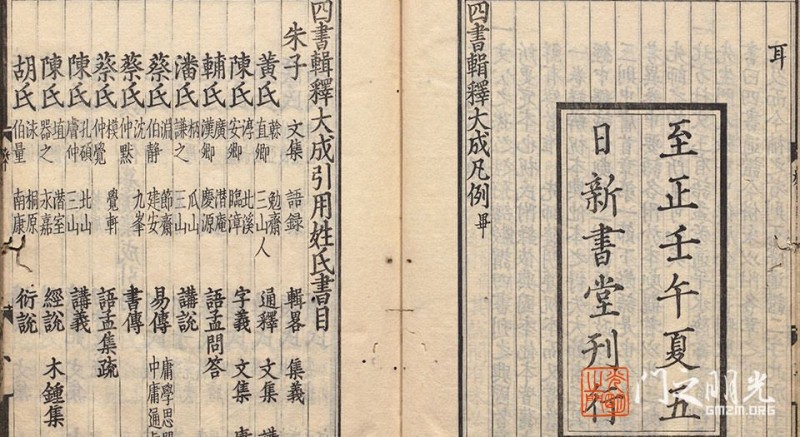 耳
至正壬午夏五
日新書堂刊行
四書輯釋大成凡例畢
四書輯釋大成引用姓氏書目
朱子 文集 語錄 輯畧 集義
黃氏 榦 直卿 勉齋 三山人 通釋 文集 講
陳氏 淳 安卿 北溪 臨漳 字義 文集
輔氏 廣 漢卿 潛庵 慶源 語孟問答
潘氏 柄 謙之 瓜山 三山 講說
蔡氏 淵 伯靜 節齋 建安 易傳 中庸通
蔡氏 沈 仲默 九峯 書傳
蔡氏 模 仲覺 覺軒 語孟集疏
陳氏 孔碩 膚仲 北山 三山 講義
陳氏 埴 器之 潛室 永嘉 經說 木鍾集
胡氏 泳 伯量 桐原 南康 衍說
光明之門
GMZM.ORG